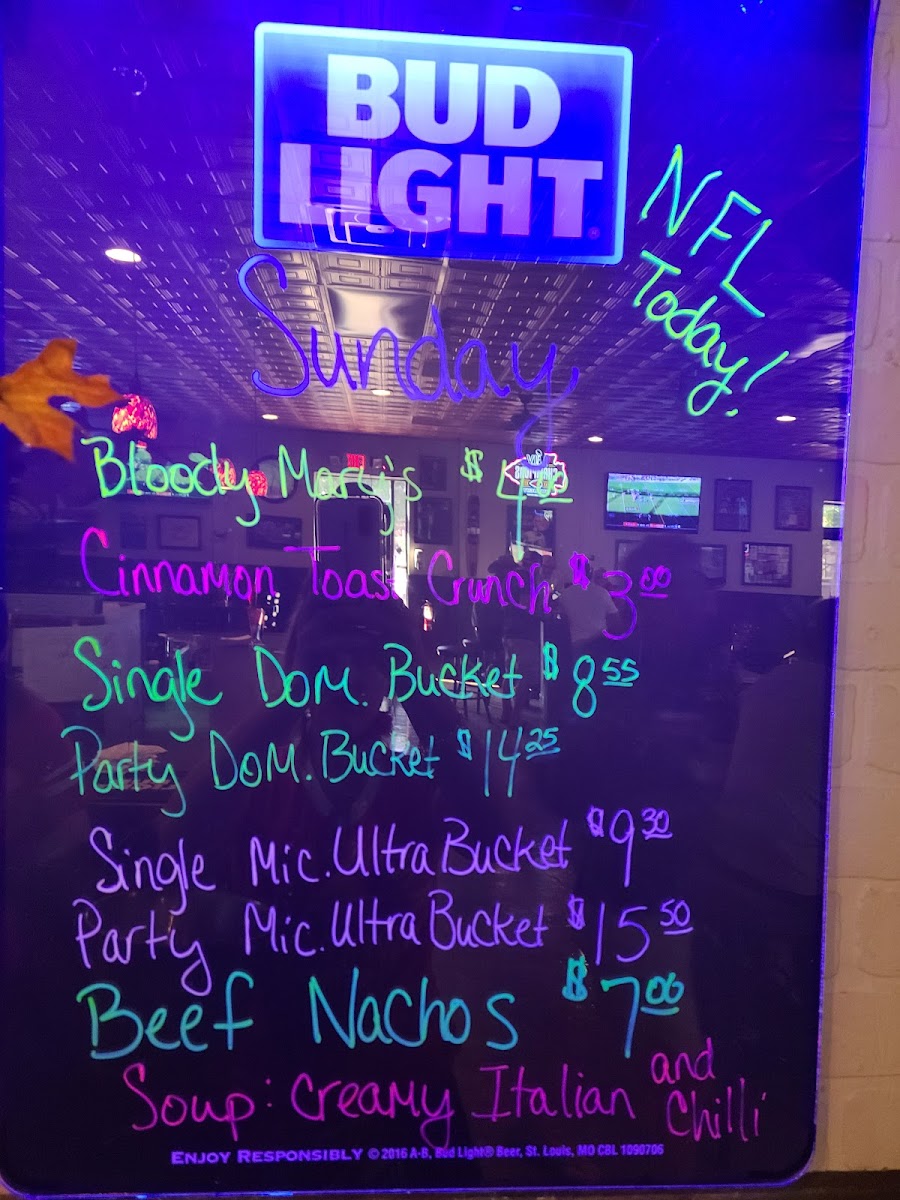 BUD
LIGHT
NFL
Today!
Sunday
Bloody Mary's $
Cinnamon Toast Crunch $3.00
Single Dom. Bucket $8.55
Party Dom. Bucket $14.25
Single Mic. Ultra Bucket $9.30
Party Mic. Ultra Bucket $15.50
Beef Nachos $7.00
Soup: Creamy Italian and Chilli
ENJOY RESPONSIBLY © 2016 A-B, Bud Light® Beer, St. Louis, MO CBL 1090706